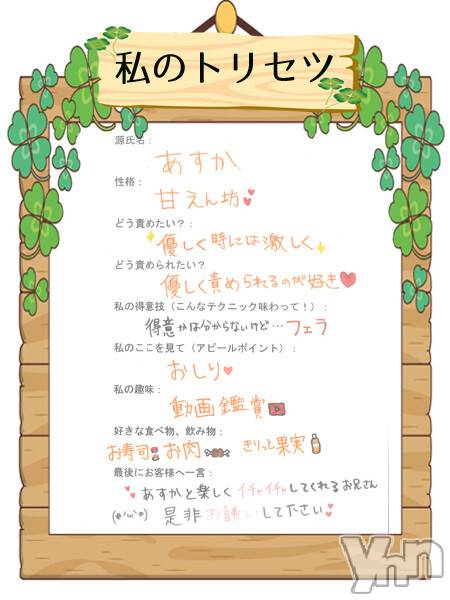 私のトリセツ
源氏名：
あすか
性格：
甘えん坊
どう責めたい？：
優しく時には激しく
どう責められたい？
優しく責められるのが好き
私の得意技（こんなテクニック味わって！）：
得意かは分からないけど…フェラ
私のここを見て（アピールポイント）：
おしり
私の趣味：
動画鑑賞
好きな食べ物、飲み物：
お寿司 お肉 きりっと果実
最後にお客様へ一言：
あすかと楽しくイチャイチャしてくれるお兄さん
(●'ω'●) 是非お誘いして下さい